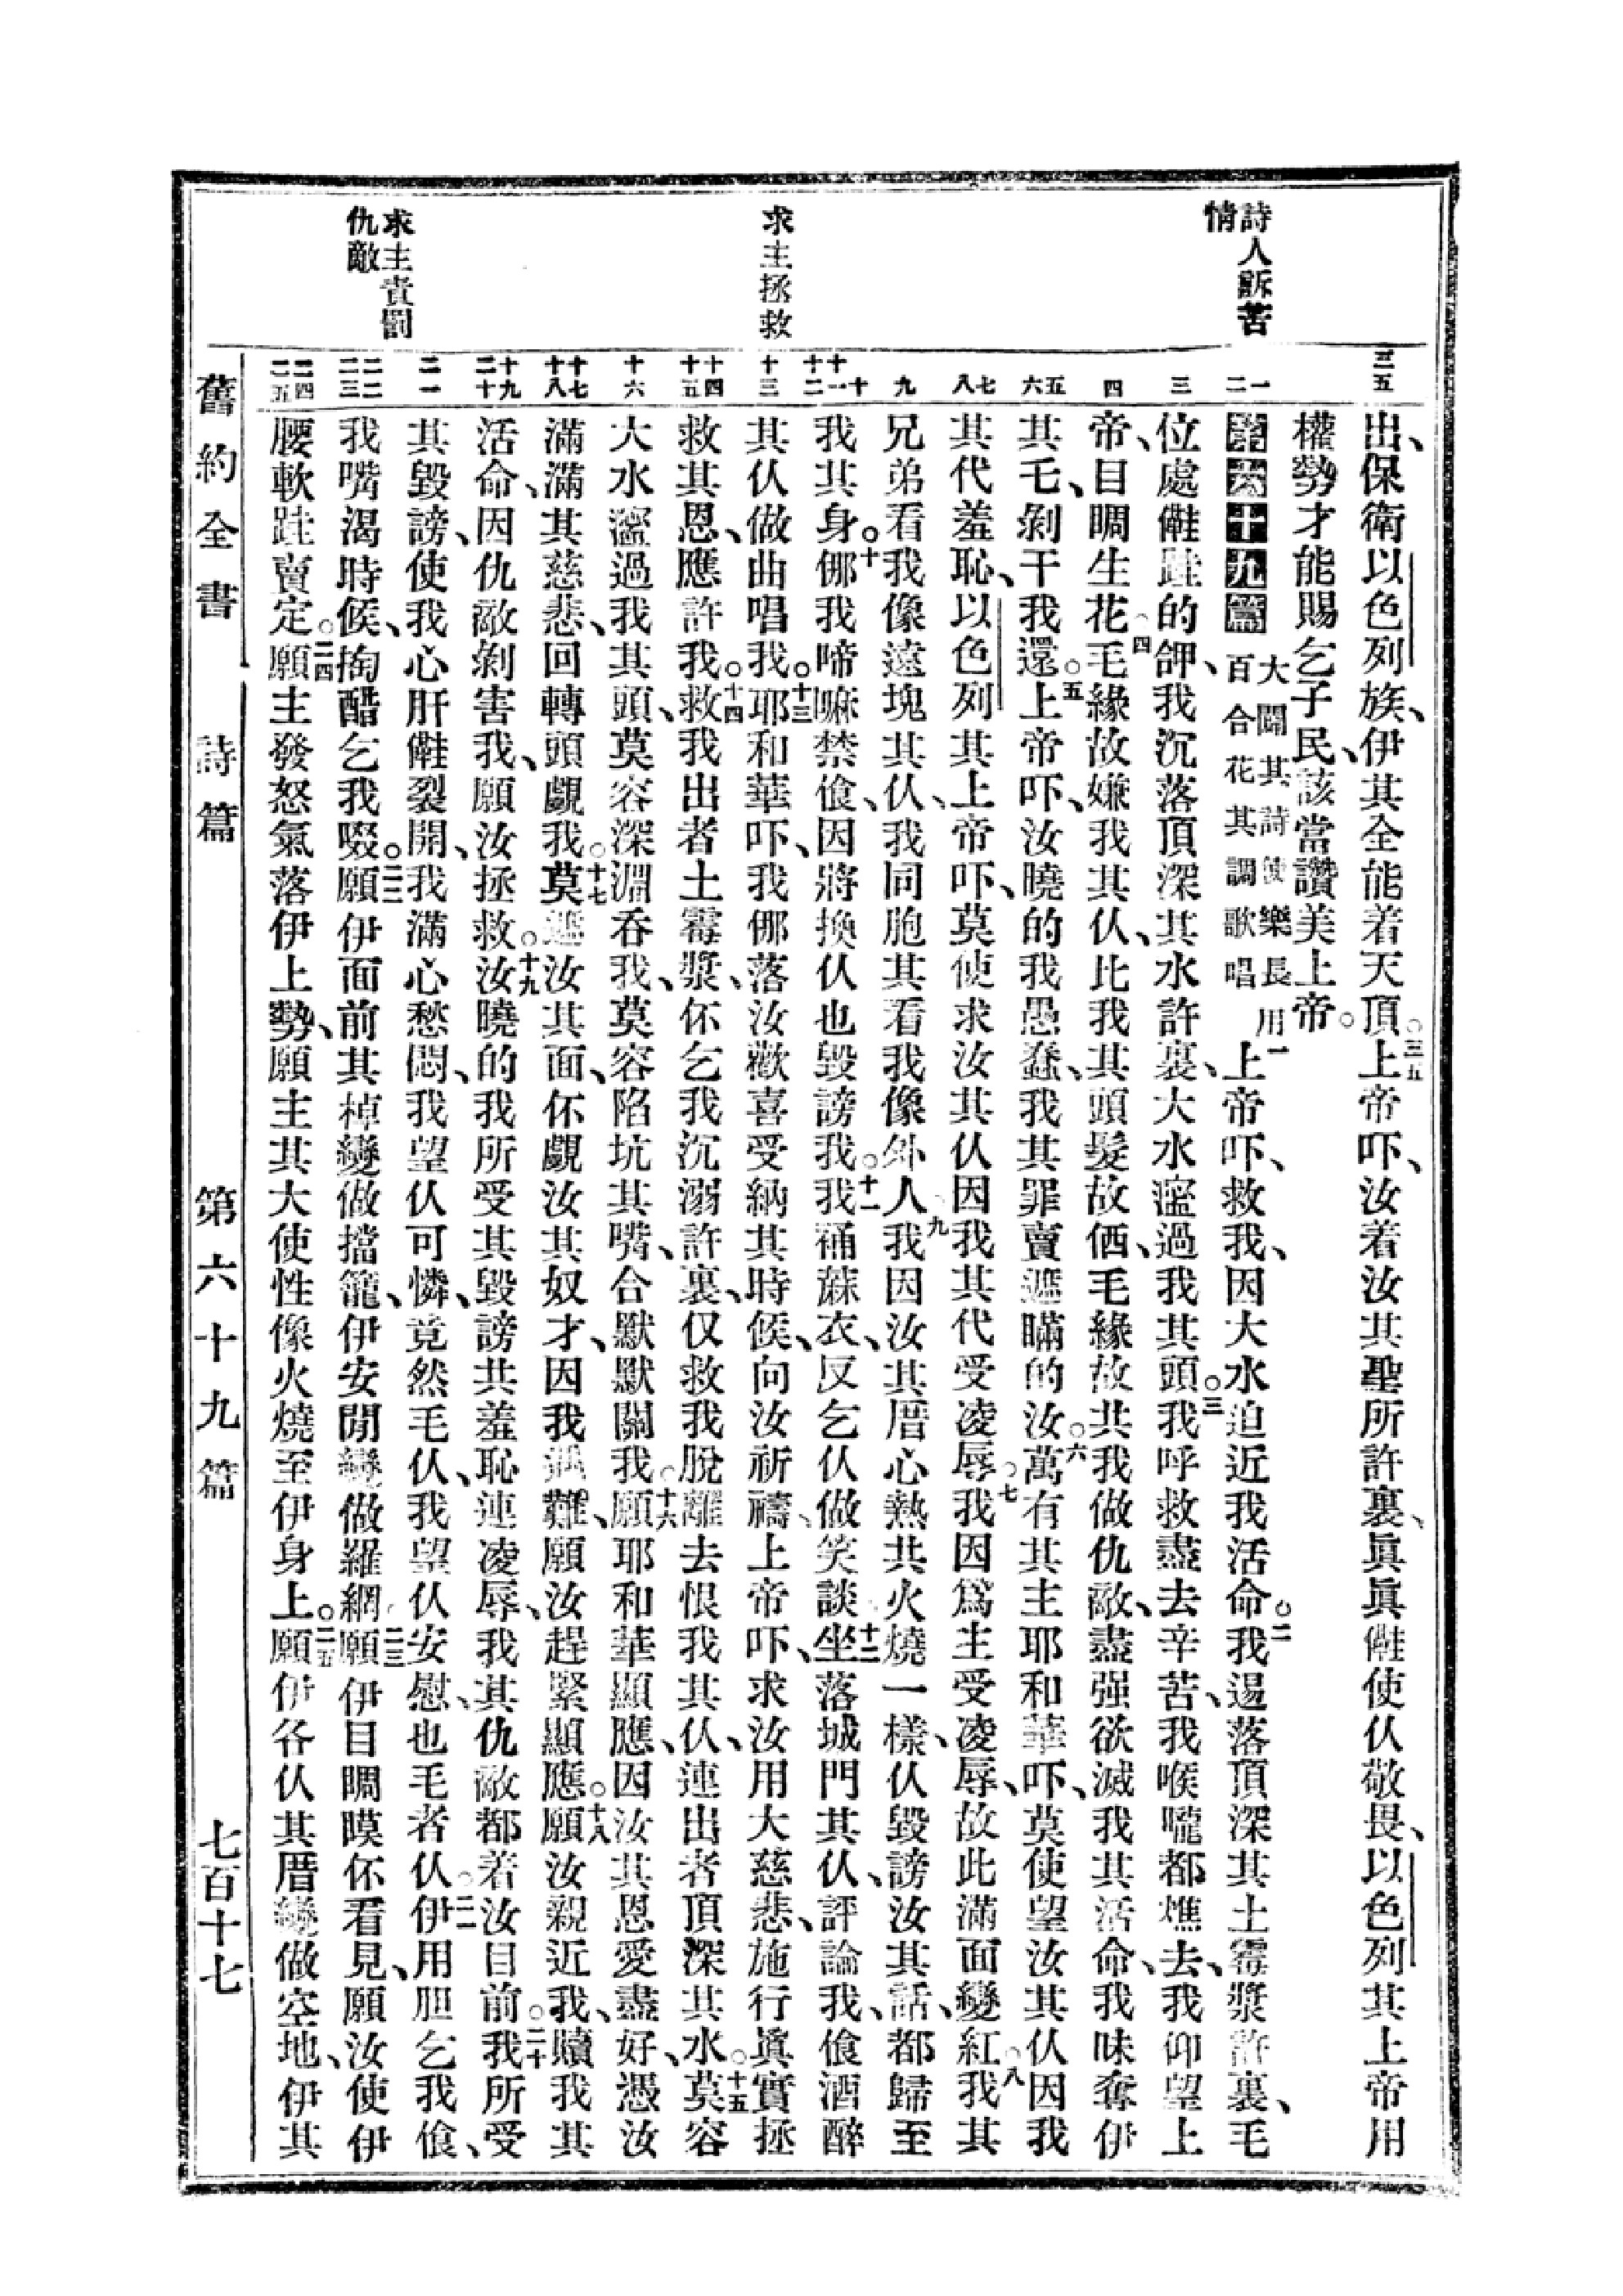 詩人訴苦
情
求主拯救
求主責罰
仇敵
三五
一
二
三
四
五
六
七
八
九
十
十一
十二
十三
十四
十五
十六
十七
十八
十九
二十
二一
二二
二三
二四
二五
出、保衛以色列族、伊其全能着天頂。三五上帝吓、汝着汝其聖所許裏、眞眞㑚使仈敬畏、以色列其上帝用
權勢才能賜乞子民、該當讚美上帝。
第六十九篇
大闢其詩使樂長用
百合花其調歌唱
一上帝吓、救我、因大水迫近我活命。二我逿落頂深其土霉漿許裏、毛
位處㑚跬的𬦰、我沉落頂深其水許裏、大水瀊過我其頭。三我呼救盡去辛苦、我喉嚨都燋去、我仰望上
帝、目睭生花。四毛緣故嫌我其仈、比我其頭髮故価、毛緣故共我做仇敵、盡强欲滅我其活命、我昧奪伊
其毛、剝干我還。五上帝吓、汝曉的我愚蠢、我其罪賣遮瞞的汝。六萬有其主耶和華吓、莫使望汝其仈因我
其代羞恥、以色列其上帝吓、莫使求汝其仈因我其代受凌辱。七我因爲主受凌辱、故此滿面變紅。八我其
兄弟看我像遠塊其仈、我同胞其看我像外人。九我因汝其厝心熱共火燒一樣、仈毀謗汝其話、都歸至
我其身。十㑚我啼嘛禁飡、因將換仈也毀謗我。十一我䙄蔴衣、反乞仈做笑談。十二坐落城門其仈、評論我、飡酒醉
其仈做曲唱我。十三耶和華吓、我㑚落汝歡喜受納其時候、向汝祈禱、上帝吓、求汝用大慈悲、施行眞實拯
救其恩、應許我。十四救我出者土霉漿、伓乞我沉溺許裏、仅救我脫離去恨我其仈、連出者頂深其水。十五莫容
大水瀊過我其頭、莫容深淵吞我、莫容陷坑其嘴、合默默關我。十六願耶和華顯應、因汝其恩愛盡好、憑汝
滿滿其慈悲、回轉頭覷我。十七莫遮汝其面、伓覷汝其奴才、因我遇難、願汝趕緊顯應。十八願汝親近我、贖我其
活命、因仇敵剝害我、願汝拯救。十九汝曉的我所受其毀謗共羞恥連凌辱、我其仇敵都着汝目前。二十我所受
其毀謗、使我心肝㑚裂開、我滿心愁悶、我望仈可憐、竟然毛仈、我望仈安慰、也毛者仈。二一伊用胆乞我飡、
我嘴渴時候、掏醋乞我啜。二二願伊面前其棹變做擋籠、伊安閒變做羅網。二三願伊目睭瞙伓看見、願汝使伊
腰軟跬賣定。二四願主發怒氣落伊上勢、願主其大使性像火燒至伊身上。二五願伊各仈其厝變做空地、伊其
舊約全書　詩篇　第六十九篇　七百十七